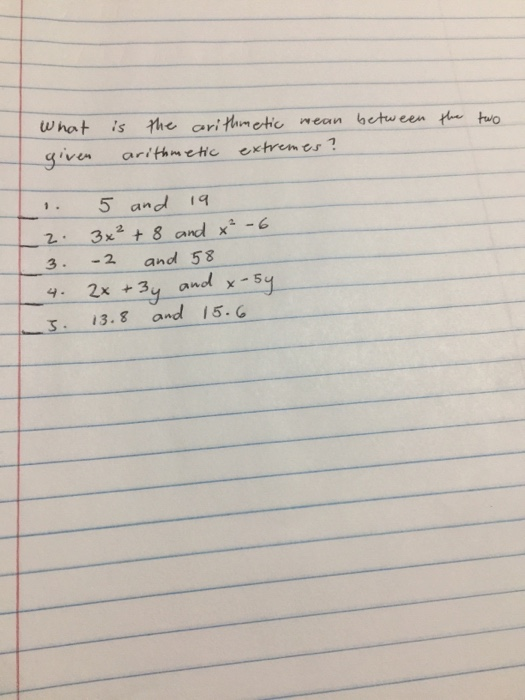 What is the arithmetic mean between the two
given arithmetic extremes?
1. 5 and 19
2. 3x² + 8 and x² - 6
3. -2 and 58
4. 2x + 3y and x - 5y
5. 13.8 and 15.6